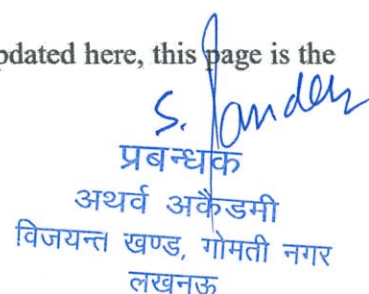 pdated here, this page is the
S. Pandey
प्रबन्धक
अथर्व अकैडमी
विजयन्त खण्ड, गोमती नगर
लखनऊ